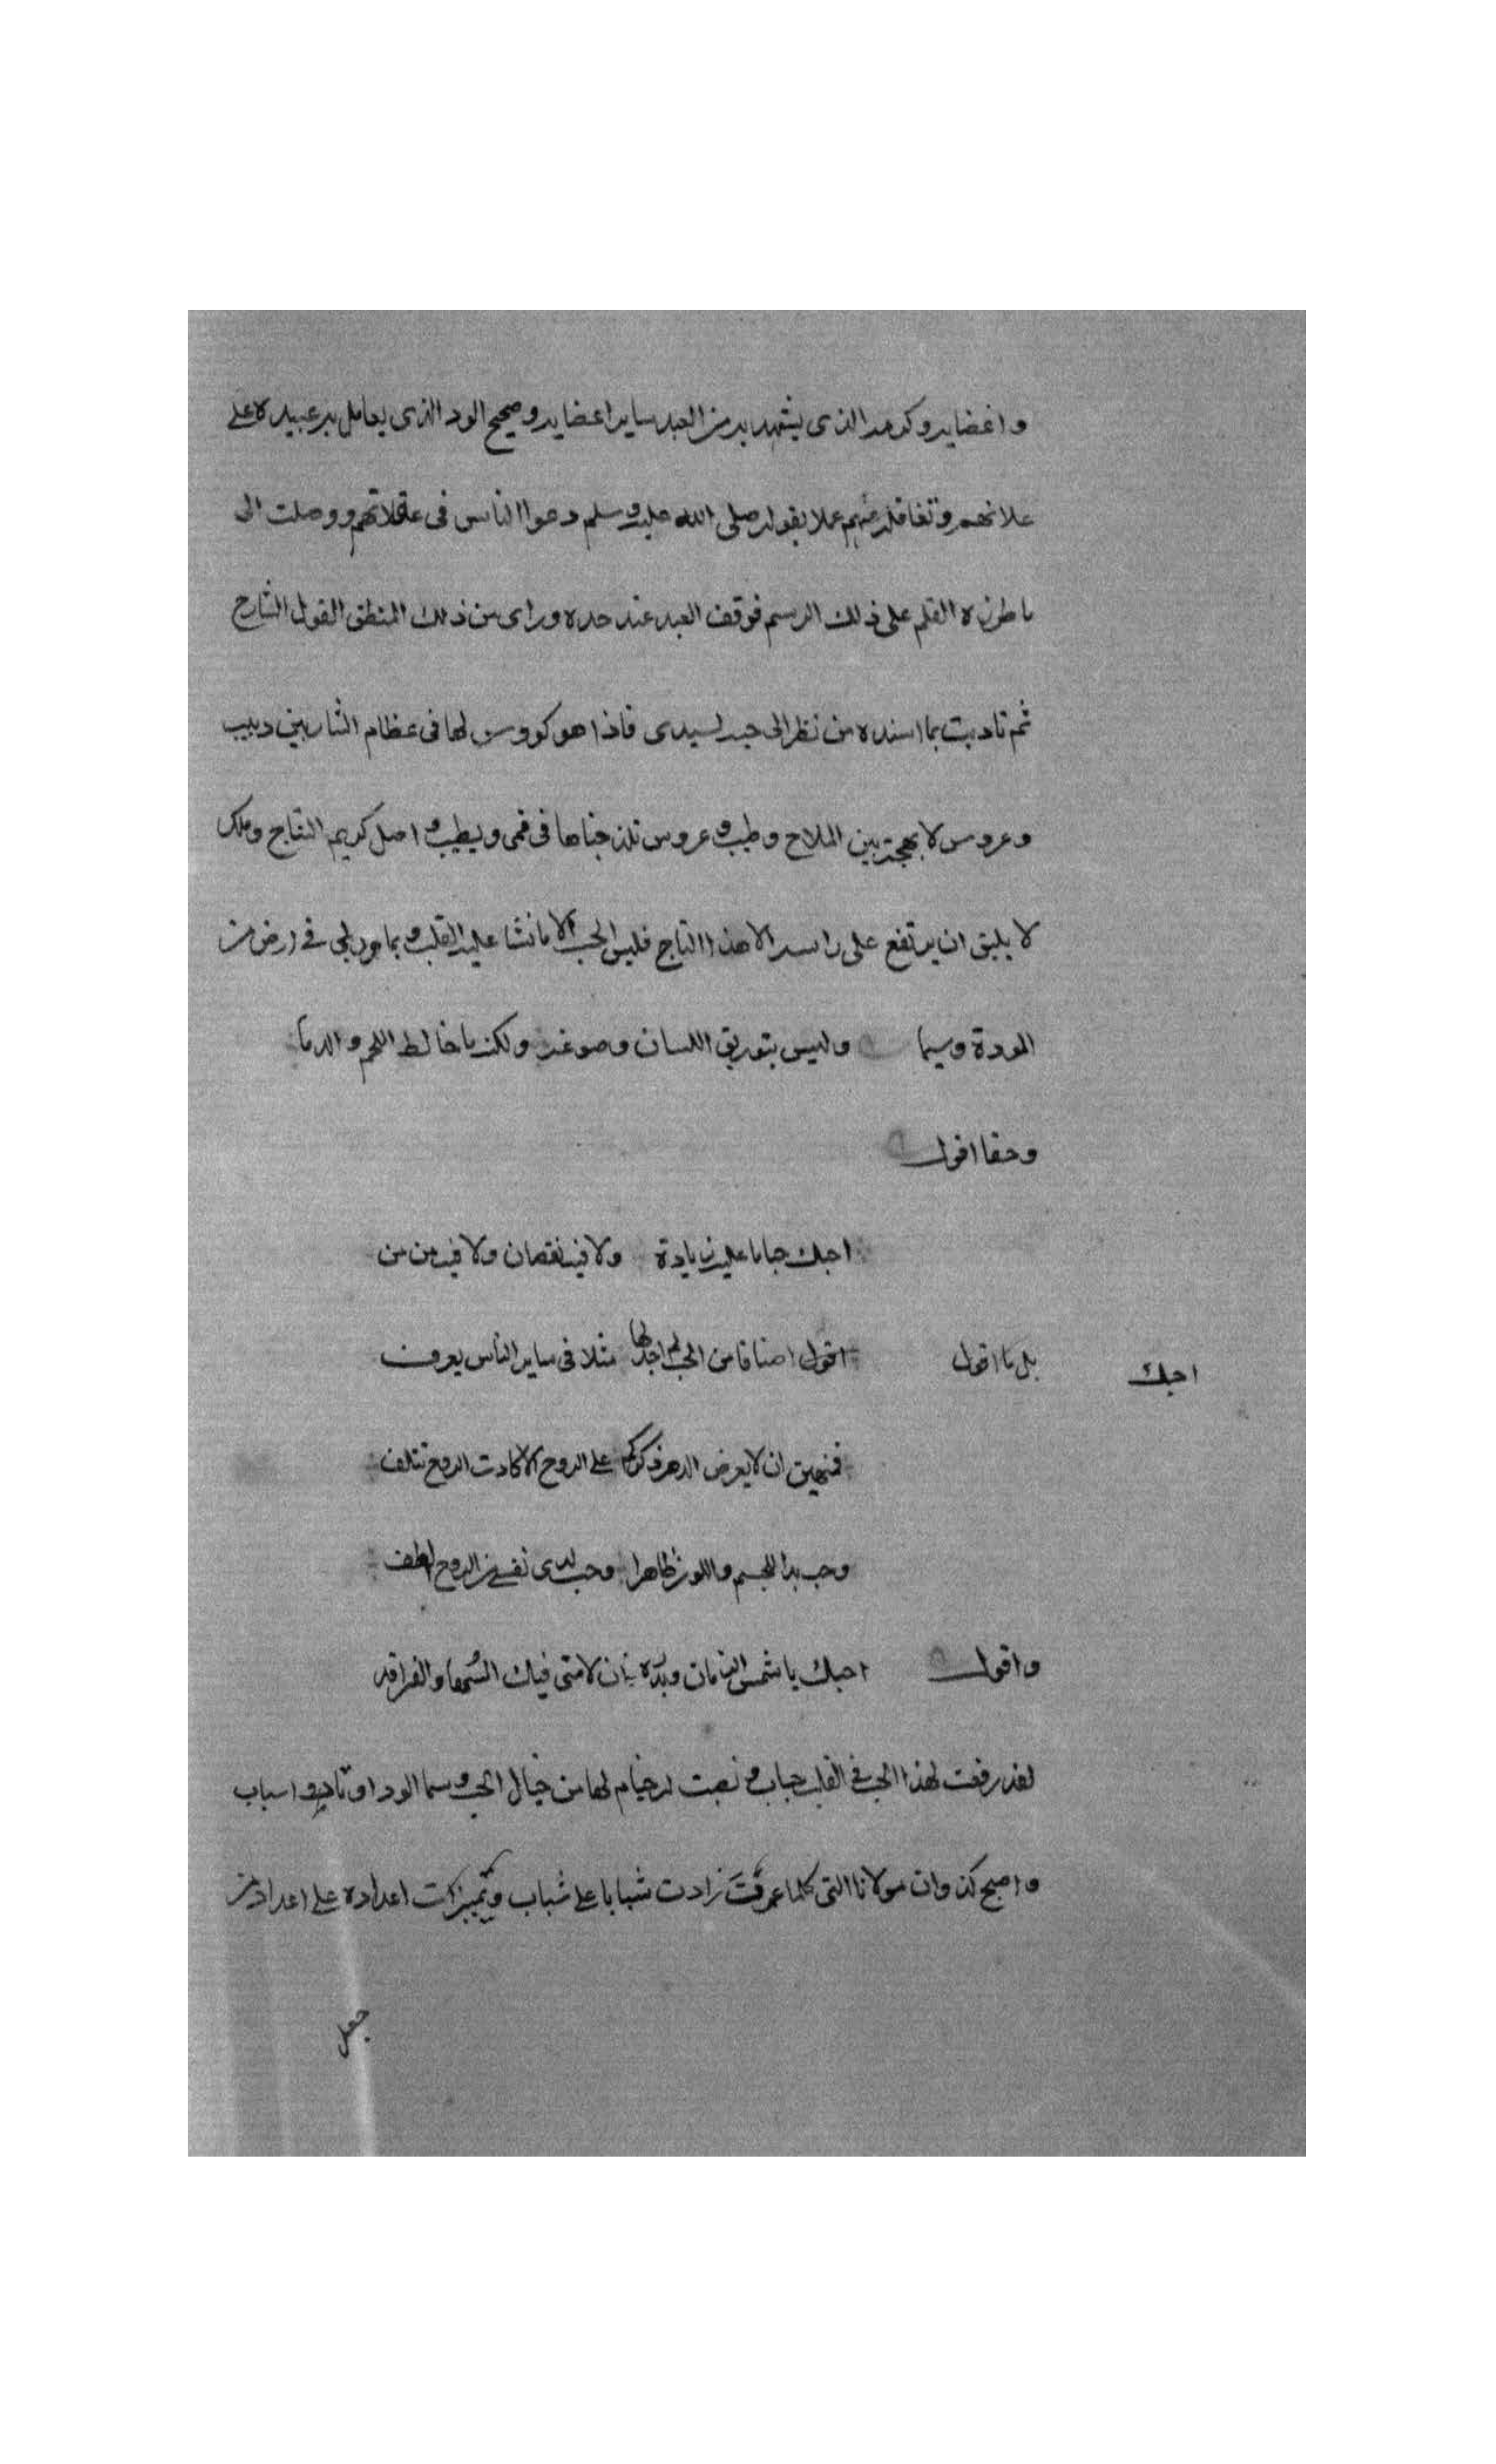 واغضايه وكرمه الذى يشهد به من العبد ساير اعضايه وصحيح الود الذى يعامل به عبيده على
علاتهم وتغافله عنهم عملا بقوله صلى الله عليه وسلم دعوا الناس فى غفلاتهم ووصلت الى
ما طرزه القلم على ذلك الرسم فوقف العبد عند حده وراى من ذلك المنطق القول الشارح
ثم تادبت بما اسنده من نظر الى حب لسيدى فاذا هو كووس لها فى عظام الشاربين دبيب
وعروس لا بهجة بين الملاح وطيب وغروس تلذ جناها فى فمى ويطيب واصل كريم النتاج وملك
لا يليق ان يرتفع على راسه الا هذا التاج فليس الحب الا ما نشا عليه القلب وبما وربى فى ارض من
المودة وسما وليس بتوريق اللسان وصوغه ولكنه ما خالط اللحم والدما
وحقا اقول
احبك حبا ما عليه زيادة ولا فيه نقصان ولا فيه من من
بل ما اقول اقول اصنافا من الحب لم اجد لها مثلا فى ساير الناس يعرف
احبك
فمنهن ان لا يعرض الدهر ذكركم على الروح الا كادت الروح تتلف
وحب بدا للجسم واللون ظاهرا وحب لدى نفسى من الروح الطف
واقول احبك يا شمس الزمان وبدره وان لامنى فيك السها والفراقد
لقد رفعت لهذا الحب فى القلب حباب ونصبت له خيام لها من خيال الحب وسما الود اوتاد واسباب
واصبح كذ وان مولانا التى كلما عمرت زادت شبابا على شباب وتميزت اعداده على اعداد من
جعل